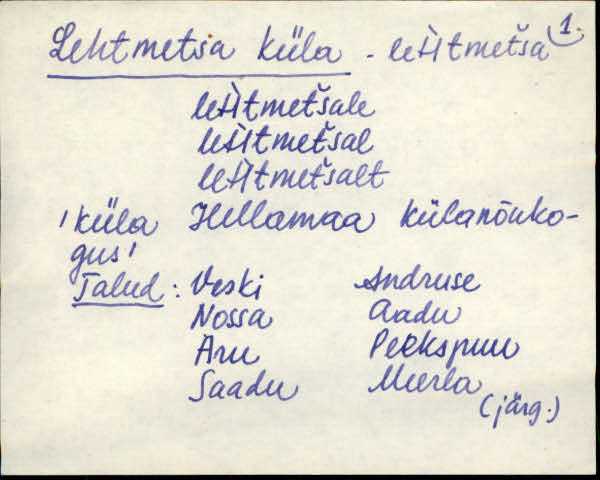 1.
Lehtmetsa küla - leHtmetša
leHtmetšale
leHtmetšal
leHtmetšalt
'küla Hellamaa külanõuko-
gus'
Talud: Veski Andruse
Nossa Aadu
Aru Peekspuu
Saadu Meerla
(järg.)